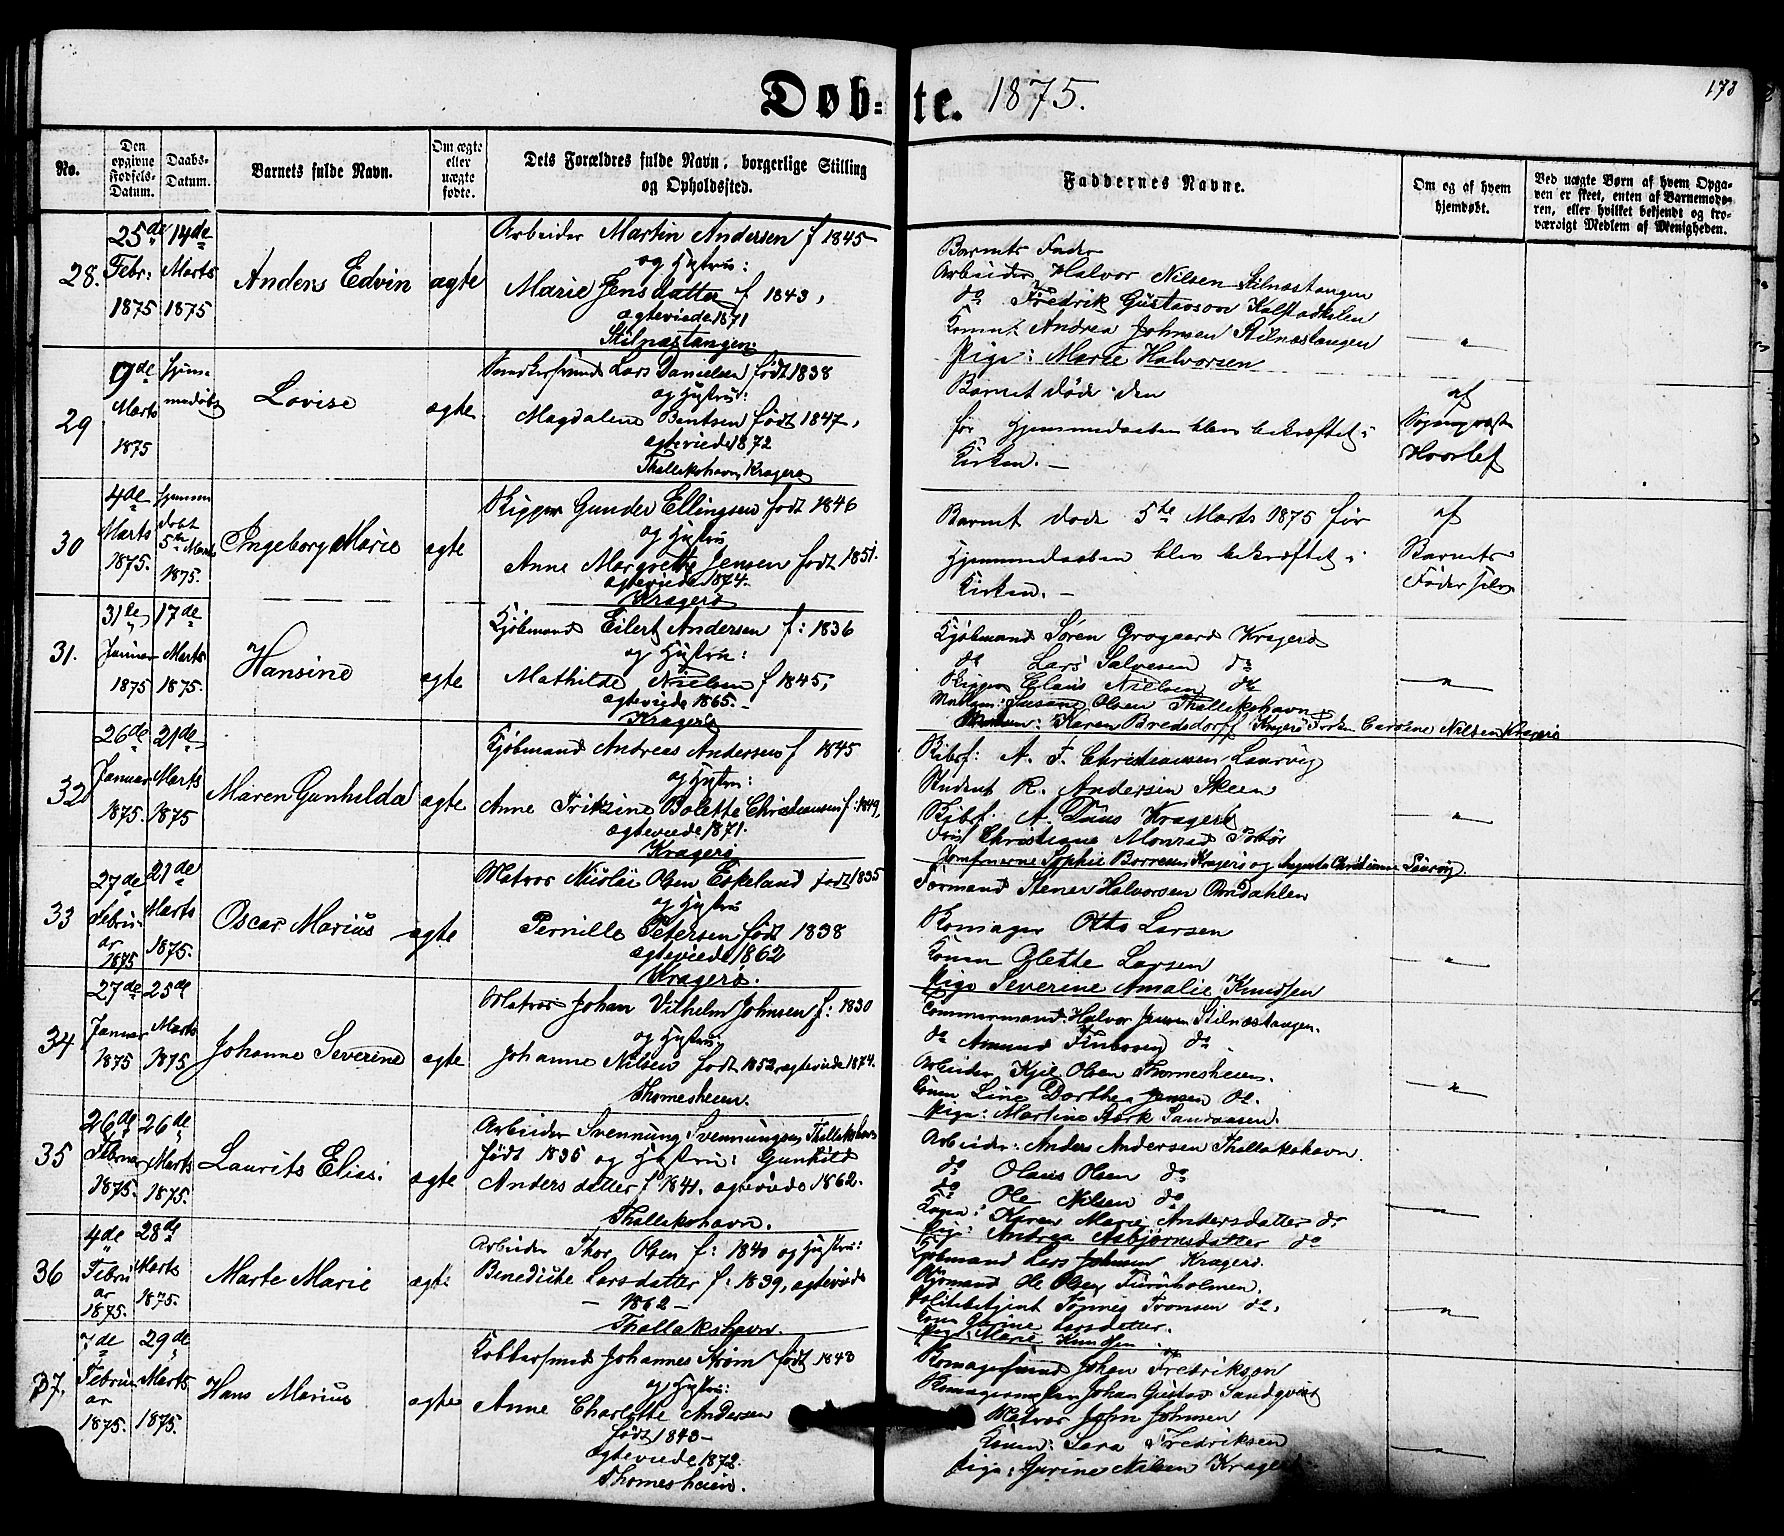 Døb-te. 1875.
173
No.
Den opgivne Fødsels-Datum.
Daabs-Datum.
Barnets fulde Navn.
Om ægte eller uægte fødte.
Dets Forældres fulde Navn, borgerlige Stilling og Opholdssted.
Faddernes Navne.
Om og af hvem hjemdøbt.
Ved uægte Børn af hvem Opga-
ven er skeet, enten af Barnemode-
ren, eller hvilket bekjendt og tro-
værdigt Medlem af Menigheden.
28. 25de Febr: 1875 14de Marts 1875 Anders Edvin ægte
Arbeider Martin Andersen f 1845
og Hustru:
Marie Jensdatter f 1843,
ægteviede 1871
Stilnæstangen:
Barnets Fader
Arbeider Halvor Nilsen Stilnæstangen
do Fredrik Gustavson Kalstadkilen
Andrea Johnsen Stilnæstangen
Pige: Marie Halvorsen
29 9de Marts 1875 Lovise ægte
Lars Danielsen født 1838
og Hustru:
Magdalene Bentsen født 1847,
ægteviede 1872
Thallakshavn, Kragerø
Barnet døde den
før Hjemmedaaben blev bekræftet i
Kirken. —
af
Sogneprest
30 4de Marts 1875. 5te Marts 1875. Ingeborg Marie ægte
Rigger Gunder Ellingsen født 1846
og Hustru
Anne Margrethe Jensen født 1851.
ægteviede 1874.
Kragerø
Barnet døde 5te Marts 1875 før
Hjemmedaaben blev bekræftet i
Kirken. —
af
Barnets
Fader selv
31. 31te Januar 1875 17de Marts 1875. Hansine ægte
Kjøbmand Eilert Andersen f: 1836
og Hustru:
Mathilde Nielsen f 1845,
ægteviede 1865. —
Kragerø
Kjøbmand Søren Grogaard Kragerø
do Lars Salvesen do
Rigger Claus Nielsen do
Madam: Susanne Olsen Thallakshavn
Karen Bredsdorff Kragerø Frøken Caroline Nilsen Kragerø
32 26de Januar 1875. 21de Marts 1875 Maren Gunhilda ægte
Kjøbmand Andreas Andersen f 1845
og Hustru:
Anne Triksine Bolette Christiansen f: 1849,
ægteviede 1871.
Kragerø
Skibsf: A. T. Christiansen Laurvig
Student R. Andersen Skeen
Skibsf. A. Duus Kragerø
Christiane Monrad Portør
Jomfruerne Sophie Borresen Kragerø og Augusta Christianne Laurvig
33 27de Februar 1875 21de Marts 1875. Oscar Marius ægte
Matros Nicolai Olsen Eskeland født 1835
og Hustru
Pernille Petersen født 1838
ægteviede 1862
Kragerø.
Formand Stener Halvorsen Omdahlen
Otto Larsen
Konen Olette Larsen
Pige Severine Amalie Knudsen
34 27de Januar 1875 25de Marts 1875 Johanne Severine ægte
Matros Johan Vilhelm Johnsen f: 1830
og Hustru
Johanne Nilsen født 1852, ægteviede 1874.
Thomesheien.
Tømmermand: Halvor Jensen Stilnæstangen.
do Amund Finboen do
Arbeider Kjil Olsen Thomesheien.
Konen Line Dorthea Jensen do.
Pige: Martine Aark Sandaasen.
35 26de Februar 1875. 26de Marts 1875. Laurits Elias: ægte
Arbeider Svennung Svennungsen Thallakshavn
født 1835 og Hustru: Gunhild
Andersdatter f 1841. ægteviede 1862.
Thallakshavn.
Arbeider: Anders Andersen Thallakshavn.
do Olaus Olsen do
do Ole Nilsen do
Konen: Karen Marie Andersdatter do
Pige: Andrea Asbjørnsdatter do
36 4de Februar 1875. 28de Marts 1875. Marte Marie ægte
Arbeider Thor Olsen f: 1840 og Hustru:
Benedicte Larsdatter f: 1839, ægteviede
— 1862 —
Thallakshavn.
Kjøbmand Lars Johnsen Kragerø.
Ole Olsen Furuholmen.
Politibetjent Tønnes Tronsen do.
Kone Gurine Larsdatter.
Pige Marie Knudsen
37. 7de Februar 1875. 29de Marts 1875. Hans Marius ægte
Kobbersmed Johannes Strøm født 1848
og Hustru:
Anne Charlotte Andersen
født 1843 —
ægteviede 1872.
Thomesheien.
Johan Fredrikson
Johan Gustav Sandqvist
Matros John Johnsen
Konen: Sara Fredriksen
Pige: Gurine Nilsen Kragerø